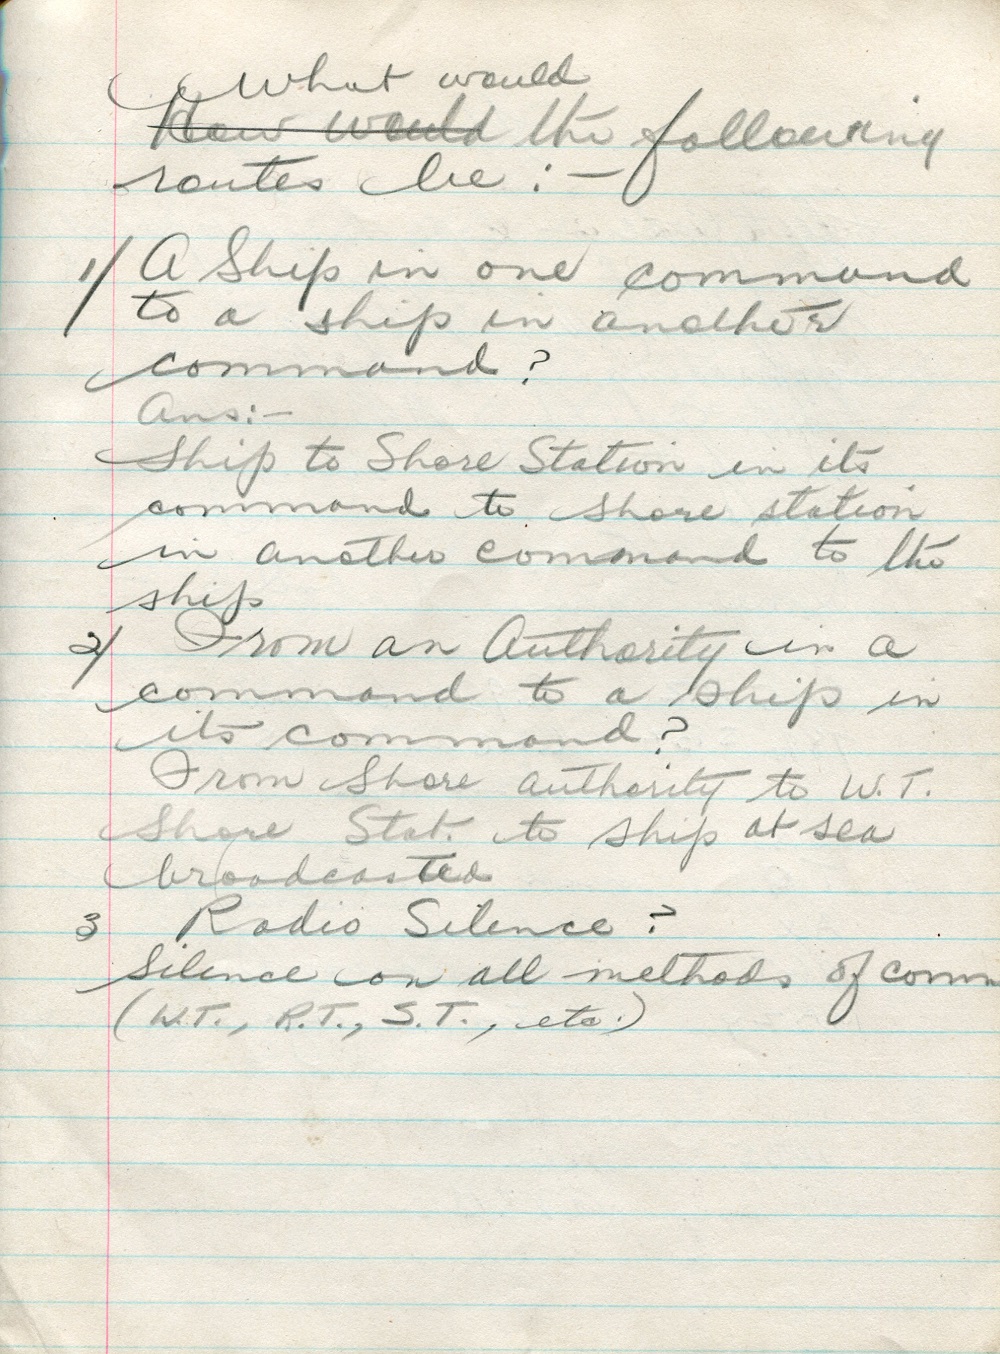 What would
How would the following
routes be :—
1/ A Ship in one command
to a ship in another
command?
Ans:—
Ship to Shore Station in its
command to shore station
in another command to the
ship
2/ From an Authority in a
command to a ship in
its command?
From Shore authority to W.T.
Shore Stat. to ship at sea
broadcasted
3 Radio Silence?
Silence on all methods of comm
(W.T., R.T., S.T., etc.)